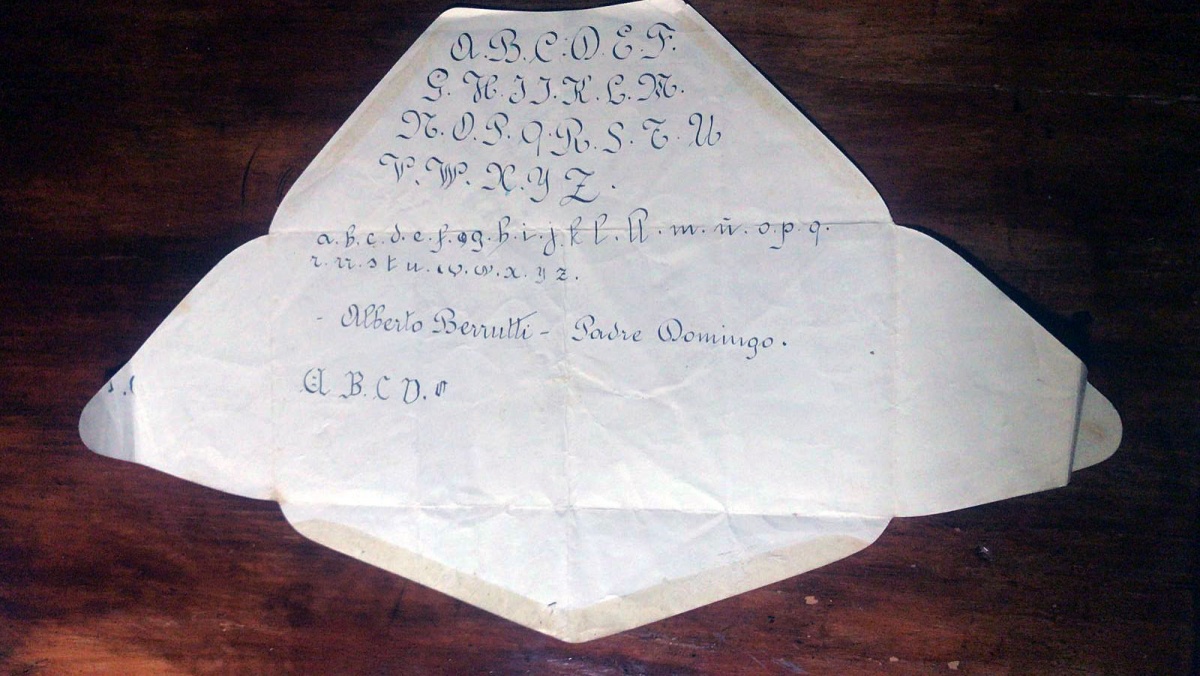 A. B. C. D. E. F.
G. H. I J. K. L. M.
N. O. P. Q R. S. T. U
V. W. X. Y Z.
a. b. c. d. e. f. g. h. i. j k l. ll. m. ñ. o. p. q.
r. rr. s t u. v. w. x. y z.
- Alberto Berrutti - Padre Domingo.
A. B. C D.